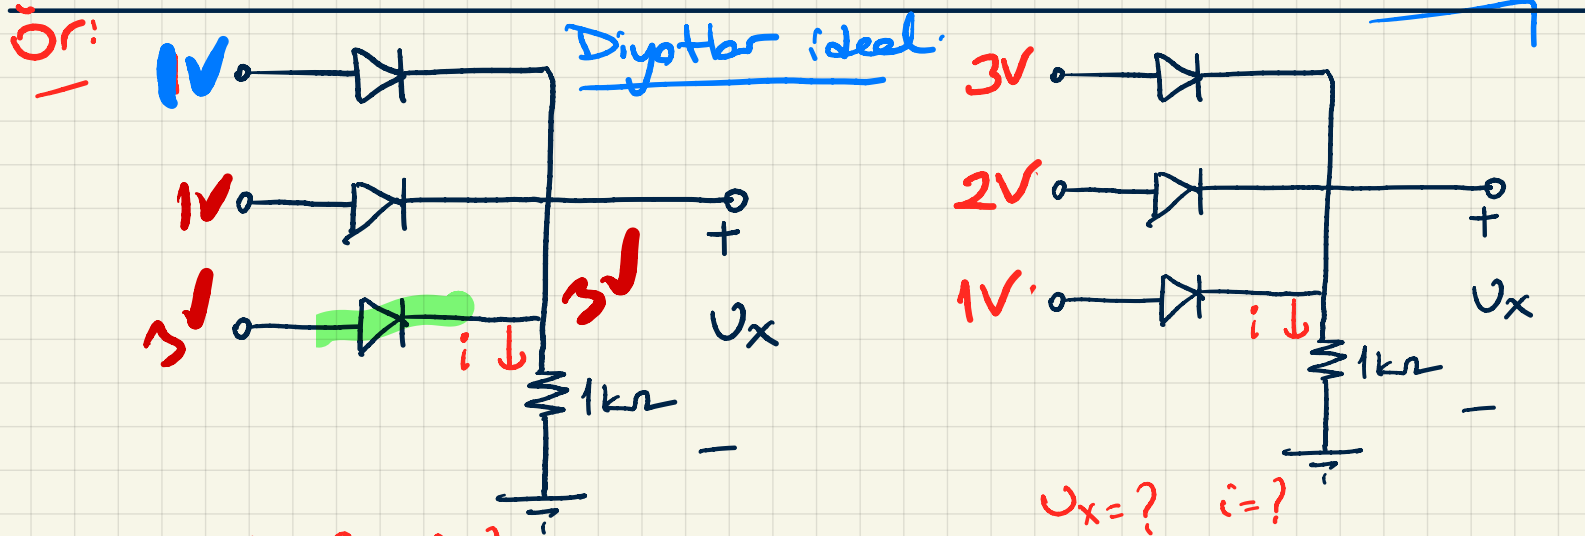 Ör:
Diyotlar ideal.
1V
1V
3V
3V
i ↓
+
Ux
-
1kΩ
3V
2V
1V.
i ↓
+
Ux
-
1kΩ
Ux = ? i = ?